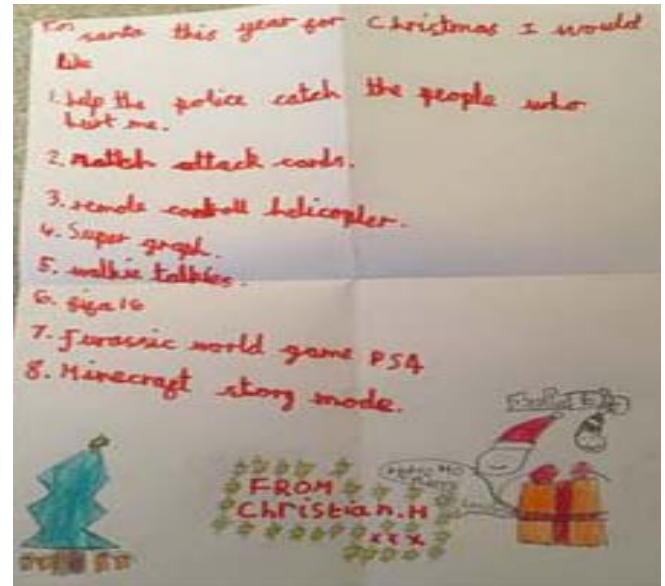 santa this year for Christmas I would
like
1. help the police catch the people who
hurt me.
2. match attack cards.
3. remote controll helicopter.
4. Super graph.
5. walkie talkies.
6. fifa 16
7. Jurassic world game PS4
8. Minecraft story mode.
Ho Ho Ho
FROM
Christian.H
xxx